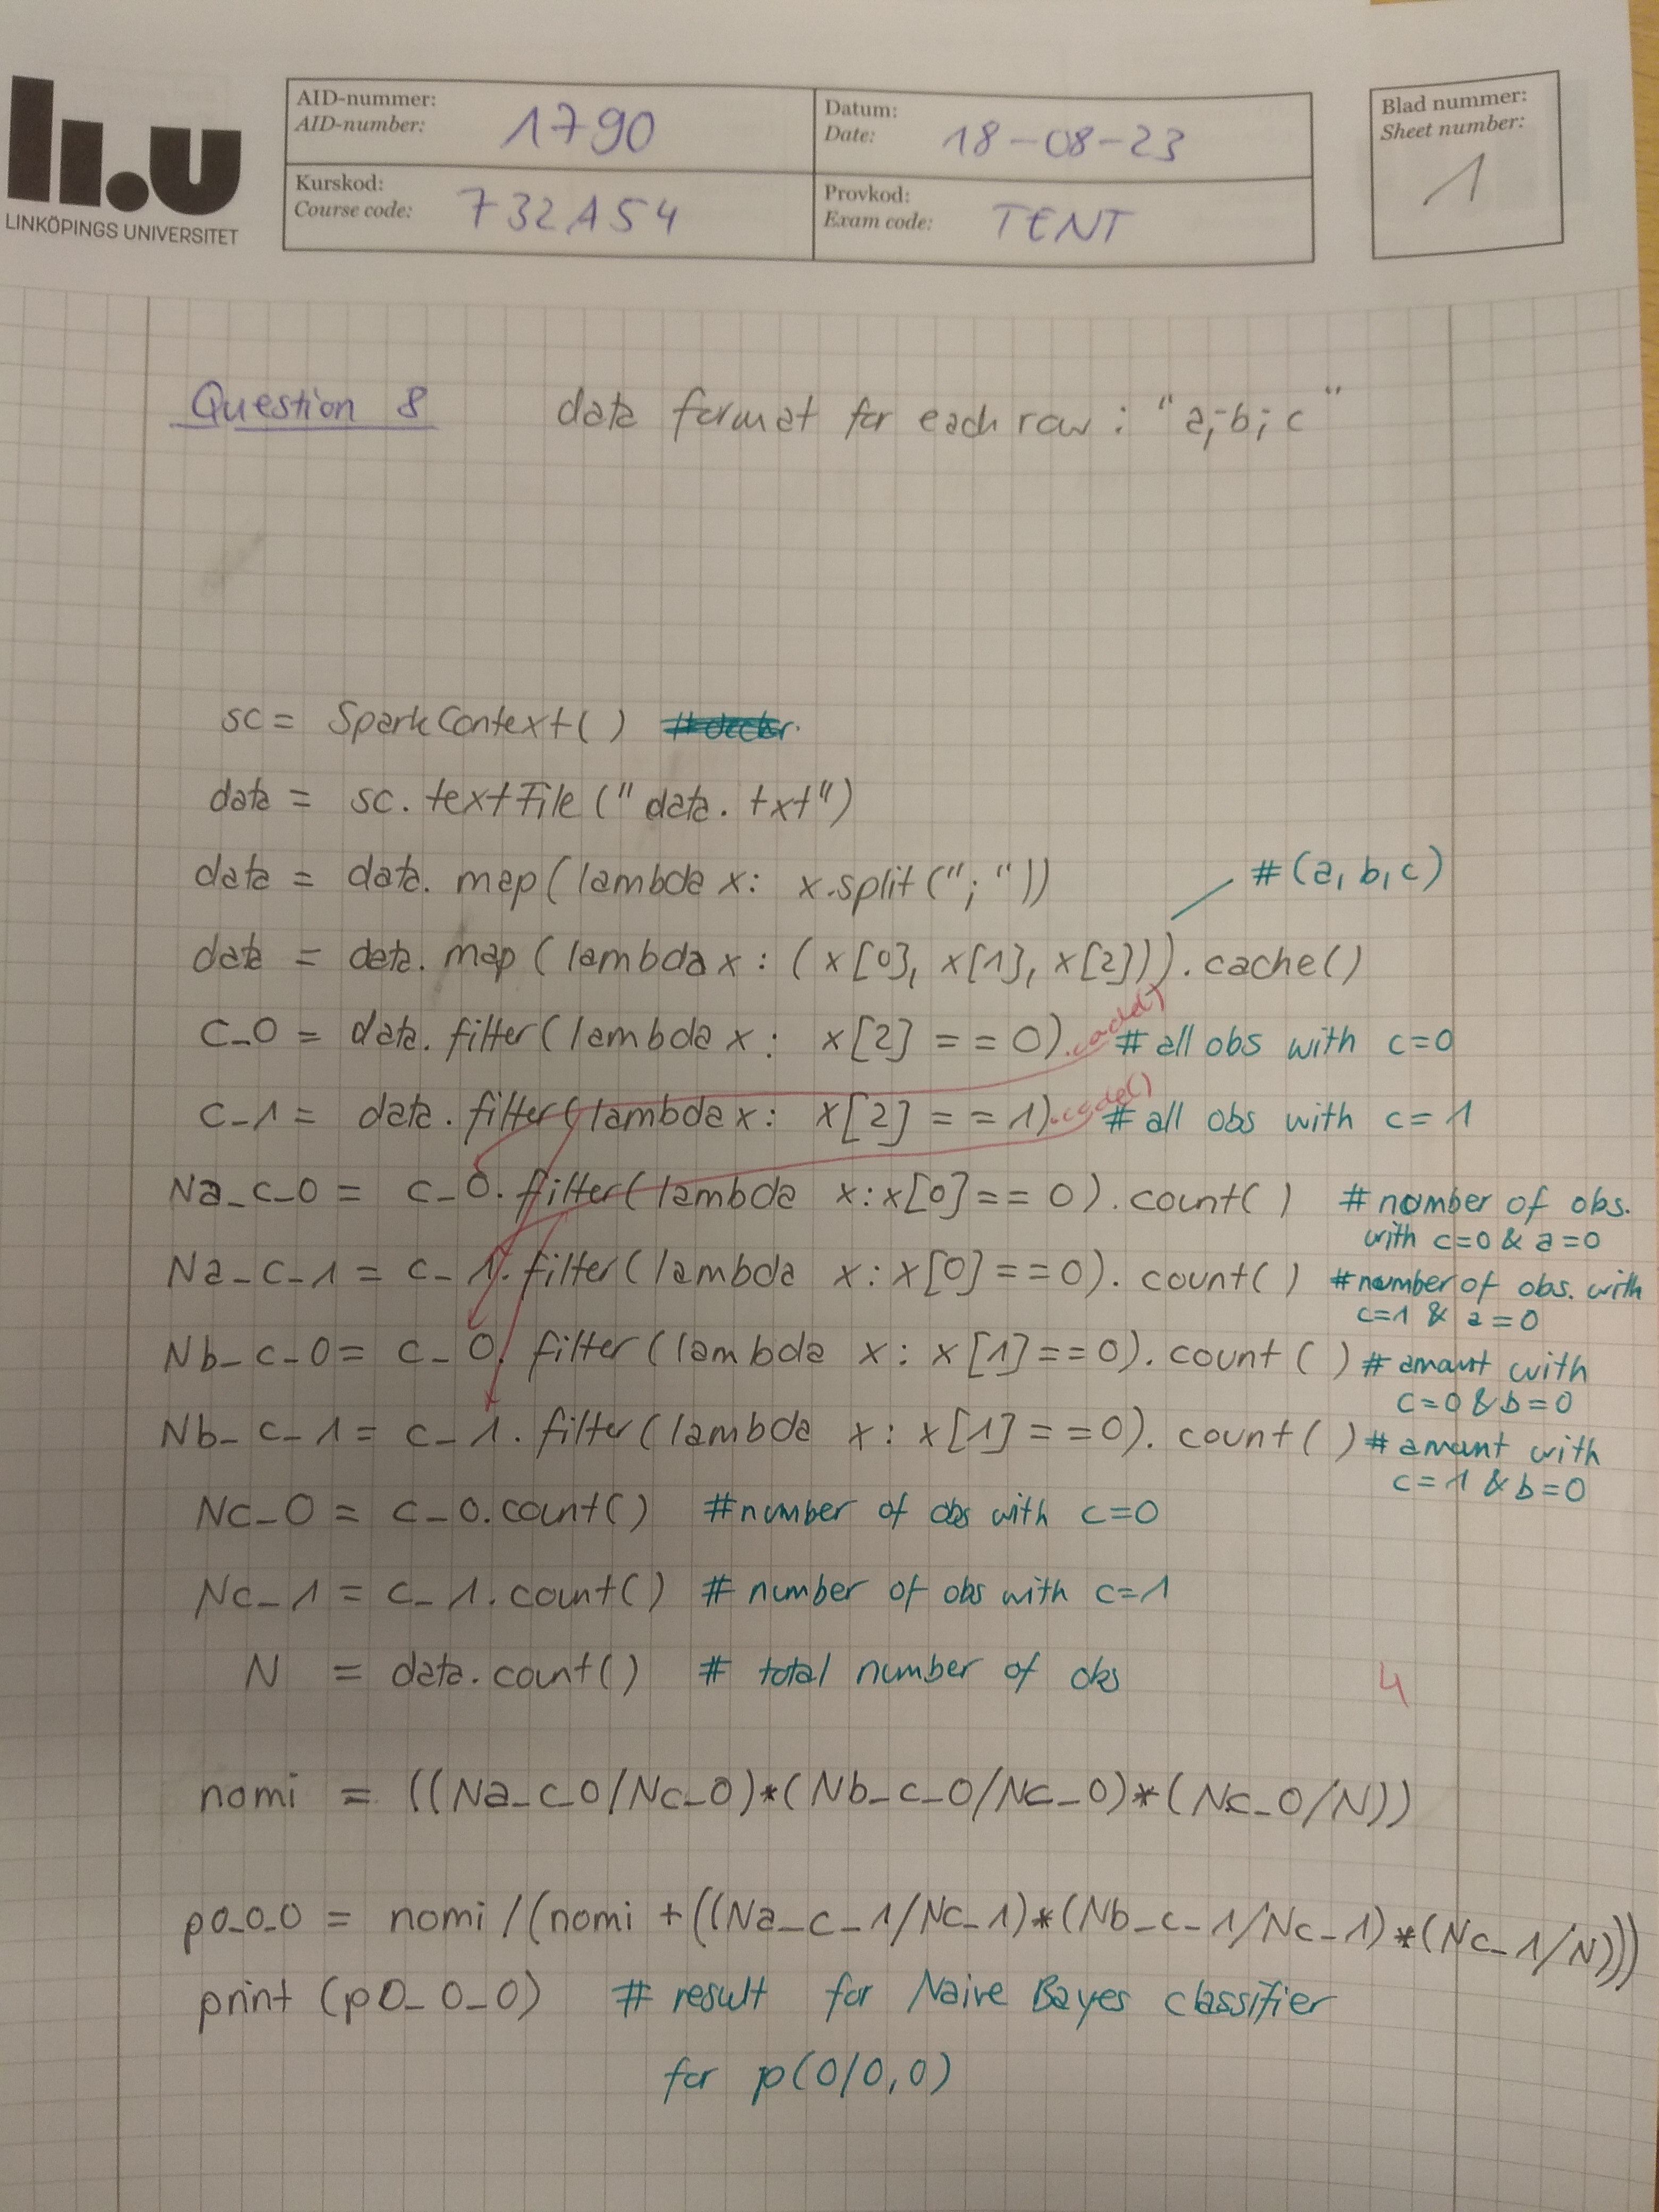 li.u
LINKÖPINGS UNIVERSITET
AID-nummer:
AID-number: 1790
Datum:
Date: 18-08-23
Kurskod:
Course code: 732A54
Provkod:
Exam code: TENT
Blad nummer:
Sheet number:
1
Question 8 data format for each row: "a;b;c"
sc = SparkContext()
data = sc.textFile("data.txt")
data = data.map(lambda x: x.split(";")) #(a,b,c)
data = data.map(lambda x: (x[0], x[1], x[2])).cache()
c_0 = data.filter(lambda x: x[2] == 0).cache() # all obs with c=0
c_1 = data.filter(lambda x: x[2] == 1).cache() # all obs with c=1
Na_c_0 = c_0.filter(lambda x: x[0] == 0).count() # number of obs.
with c=0 & a=0
Na_c_1 = c_1.filter(lambda x: x[0] == 0).count() # number of obs. with
c=1 & a=0
Nb_c_0 = c_0.filter(lambda x: x[1] == 0).count() # amount with
c=0 & b=0
Nb_c_1 = c_1.filter(lambda x: x[1] == 0).count() # amount with
c=1 & b=0
Nc_0 = c_0.count() #number of obs with c=0
Nc_1 = c_1.count() # number of obs with c=1
N = data.count() # total number of obs
4
nomi = ((Na_c_0/Nc_0)*(Nb_c_0/Nc_0)*(Nc_0/N))
p0_0_0 = nomi/(nomi+((Na_c_1/Nc_1)*(Nb_c_1/Nc_1)*(Nc_1/N)))
print (p0_0_0) # result for Naive Bayes classifier
for p(0|0,0)